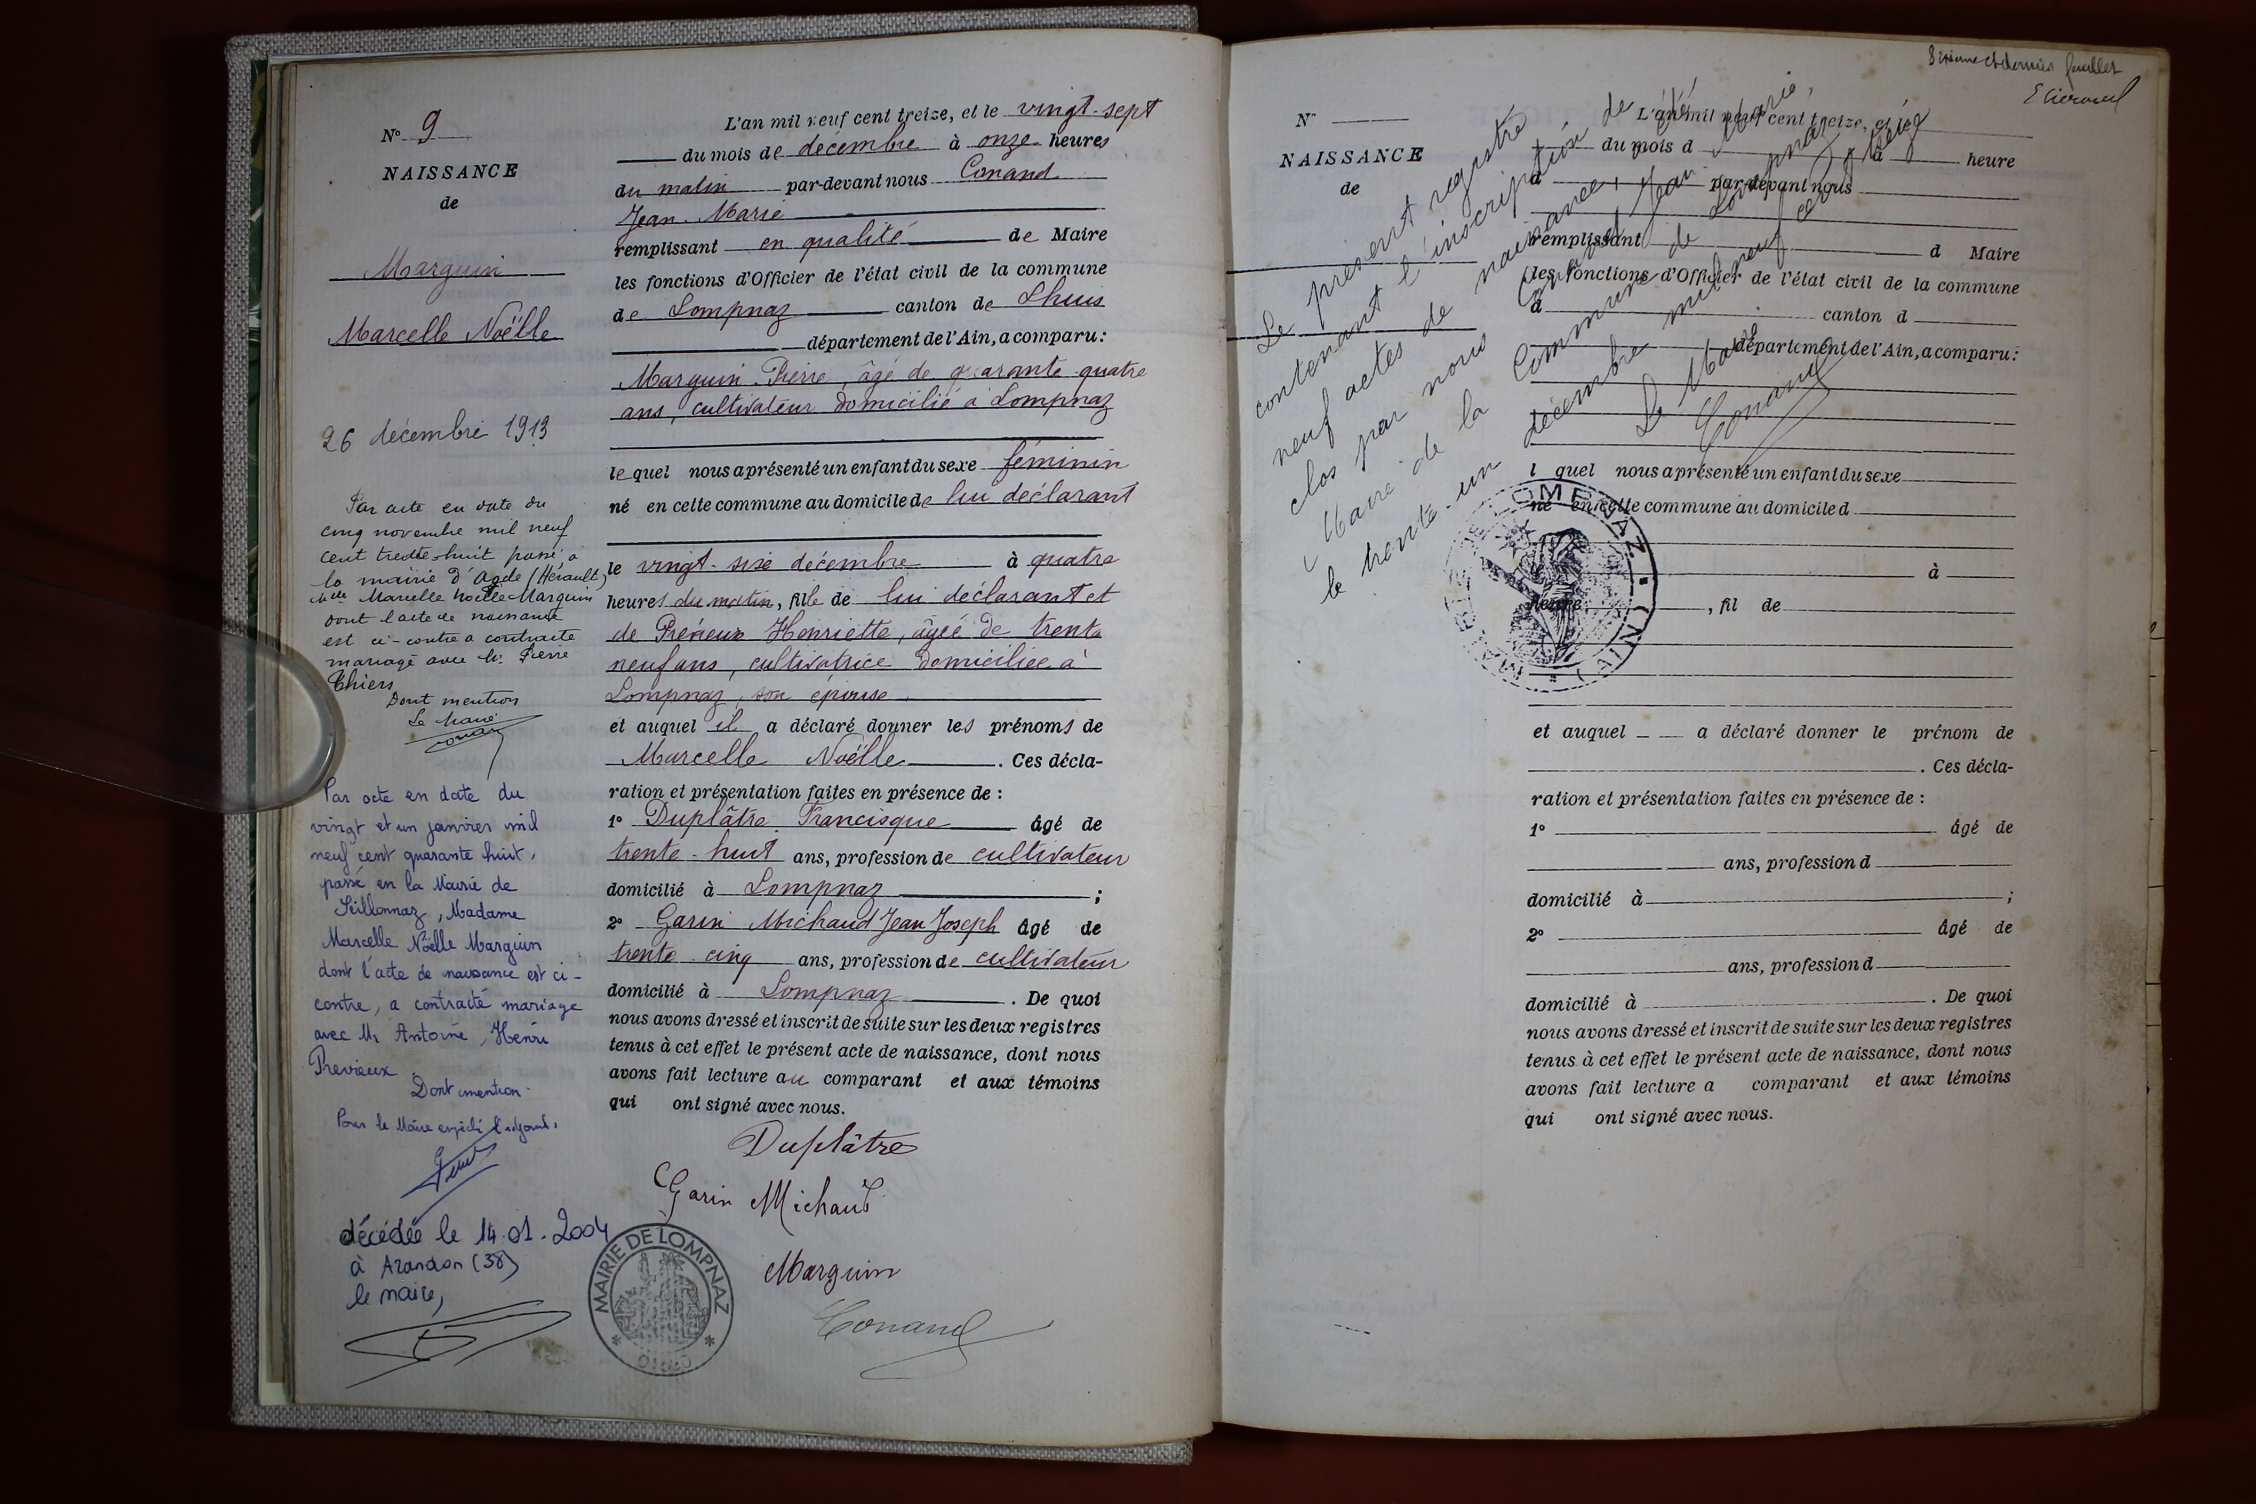 N° 9
NAISSANCE
de
Marguin
Marcelle Noëlle
26 décembre 1913
Par acte en date du
cinq novembre mil neuf
cent trente-huit passé à
la mairie d'Agde (Hérault)
Melle Marcelle Noëlle Marguin
dont l'acte de naissance
est ci-contre a contracté
mariage avec Mr. Pierre
Thiers
Dont mention
Le Maire
Conand
Par acte en date du
vingt et un janvier mil
neuf cent quarante huit,
passé en la Mairie de
Seillonnaz, Madame
Marcelle Noëlle Marguin
dont l'acte de naissance est ci-
contre, a contracté mariage
avec Mr Antoine, Henri
Previeux.
Dont mention.
Pour le Maire empêché l'adjoint,
décédée le 14.01.2004
à Arandon (38)
le maire,
L'an mil neuf cent treize, et le vingt-sept
du mois de décembre à onze heures
du matin par-devant nous Conand
Jean-Marie
remplissant en qualité de Maire
les fonctions d'Officier de l'état civil de la commune
de Lompnaz canton de Lhuis
département de l'Ain, a comparu:
Marguin Pierre, âgé de quarante-quatre
ans, cultivateur domicilié à Lompnaz
le quel nous a présenté un enfant du sexe féminin
né en cette commune au domicile de lui déclarant
le vingt-six décembre à quatre
heures du matin, fille de lui déclarant et
de Prévieux Henriette, âgée de trente
neuf ans, cultivatrice domiciliée à
Lompnaz, son épouse.
et auquel il a déclaré donner les prénoms de
Marcelle Noëlle. Ces décla-
ration et présentation faites en présence de :
1° Duplâtre Francisque âgé de
trente-huit ans, profession de cultivateur
domicilié à Lompnaz ;
2° Garin Michaud Jean Joseph âgé de
trente cinq ans, profession de cultivateur
domicilié à Lompnaz. De quoi
nous avons dressé et inscrit de suite sur les deux registres
tenus à cet effet le présent acte de naissance, dont nous
avons fait lecture au comparant et aux témoins
qui ont signé avec nous.
Duplâtre
Garin Michaud
Marguin
Conand
MAIRIE DE LOMPNAZ
01680
dernier feuillet
N°
NAISSANCE
de
Le présent registre
contenant l'inscription de
neuf actes de naissance, a été
clos par nous Conand Jean Marie,
Maire de la Commune de Lompnaz
le trente-un décembre mil neuf cent treize
Le Maire
Conand
L'an mil neuf cent treize, et le
du mois d à heure
d par-devant nous
remplissant d Maire
les fonctions d'Officier de l'état civil de la commune
d canton d
département de l'Ain, a comparu:
l quel nous a présenté un enfant du sexe
né en cette commune au domicile d
à
heure , fil de
MAIRIE DE LOMPNAZ (AIN)
et auquel a déclaré donner le prénom de
. Ces décla-
ration et présentation faites en présence de :
1° âgé de
ans, profession d
domicilié à ;
2° âgé de
ans, profession d
domicilié à . De quoi
nous avons dressé et inscrit de suite sur les deux registres
tenus à cet effet le présent acte de naissance, dont nous
avons fait lecture a comparant et aux témoins
qui ont signé avec nous.